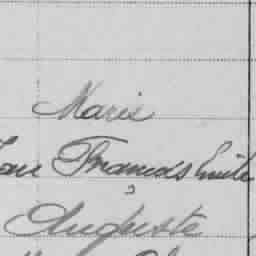 Marie
Francis Emile
Auguste